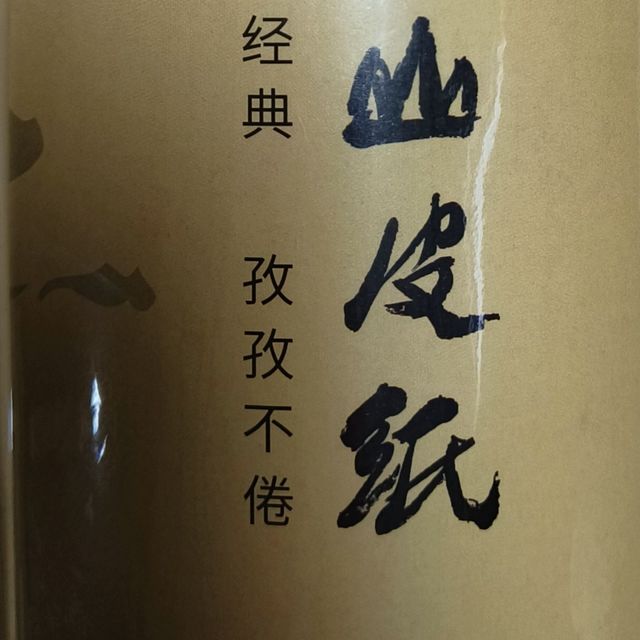 山皮纸
经典 孜孜不倦